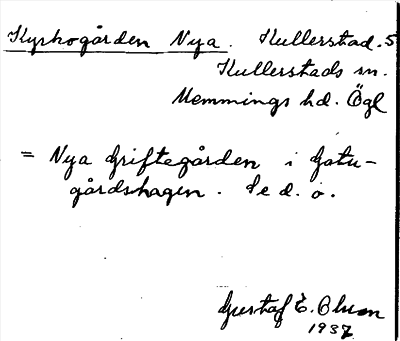 Kyrkogården Nya. Kullerstad. 5
Kullerstads sn.
Memmings hd. Ögl
= Nya Griftegården i Gatu-
gårdshagen. Se d. o.
Gustaf E. Olson
1937